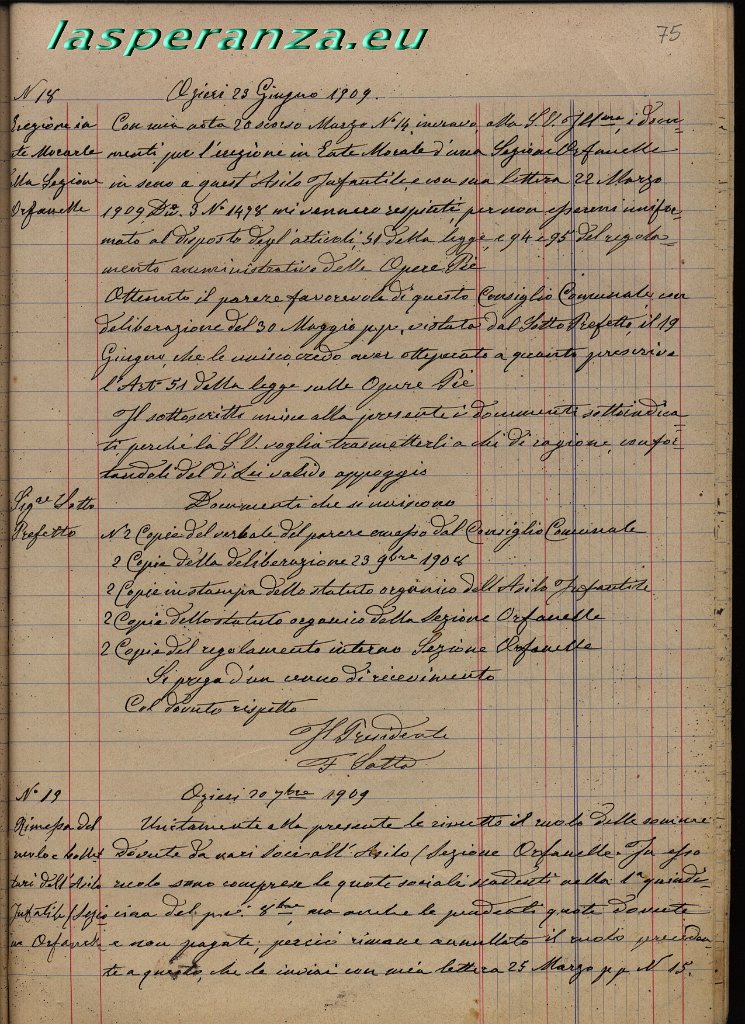 lasperanza.eu
75
N 18 Ozieri 23 Giugno 1909.
Erezione in
te Morale
lla Sezione
Orfanelle
Con mia nota 20 scorso Marzo N° 14, inviavo, alla S. V. Ill.ma, i docu-
menti per l'erezione in Ente Morale d'una Sezione Orfanelle
in seno a quest'Asilo Infantile e con sua lettera 22 Marzo
1909 Div. 3 N° 1498 mi vennero respinti, per non essermi unifor-
mato al disposto degl'articoli 51 della legge e 94 e 95 del regola-
mento amministrativo delle Opere Pie
Ottenuto il parere favorevole di questo Consiglio Comunale, con
deliberazione del 30 Maggio p.p., vistata dal Sotto Prefetto, il 19
Giugno, che le unisco, credo aver ottemperato a quanto prescrive
l'Art° 51 della legge sulle Opere Pie
Il sottoscritto unisce alla presente i documenti sottoindica-
ti perché la S. V. voglia trasmetterli a chi di ragione, confor-
tandoli del di Lei valido appoggio
Sig.re Sotto
Prefetto
Documenti che si inviscono
N° 2 Copie del verbale del parere emesso dal Consiglio Comunale
2 Copie della deliberazione 23 9bre 1908
2 Copie in stampa dello statuto organico dell'Asilo Infantile
2 Copie dello statuto organico della Sezione Orfanelle
2 Copie del regolamento interno Sezione Orfanelle
Si prega d'un cenno di ricevimento
Col dovuto rispetto
Il Presidente
F. Satta
N° 19 Ozieri 20 7bre 1909
Rimessa del
ruolo e bollet
tari dell'Asilo
Infantile (Sezio
ne Orfanelle
Unitamente alla presente le rimetto il ruolo delle somme
dovute da vari soci all'Asilo (Sezione Orfanelle. In esso
ruolo sono comprese le quote sociali scadenti nella 1ª quindi-
cina del p.v. 8bre, ma anche le pendenti quote dovute
e non pagate, perciò rimane annullato il ruolo preceden-
te a questo, che le inviai con mia lettera 25 Marzo p.p. N 15.